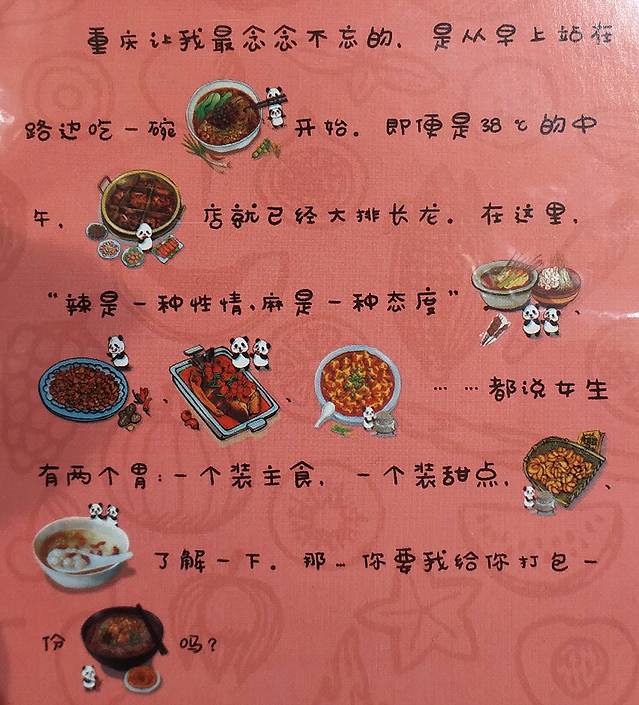 重庆让我最念念不忘的，是从早上站在
路边吃一碗 开始。即便是38℃的中
午， 店就已经大排长龙。在这里，
“辣是一种性情，麻是一种态度” 、
、 、 ……都说女生
有两个胃：一个装主食，一个装甜点， 、
了解一下。那…你要我给你打包一
份 吗？